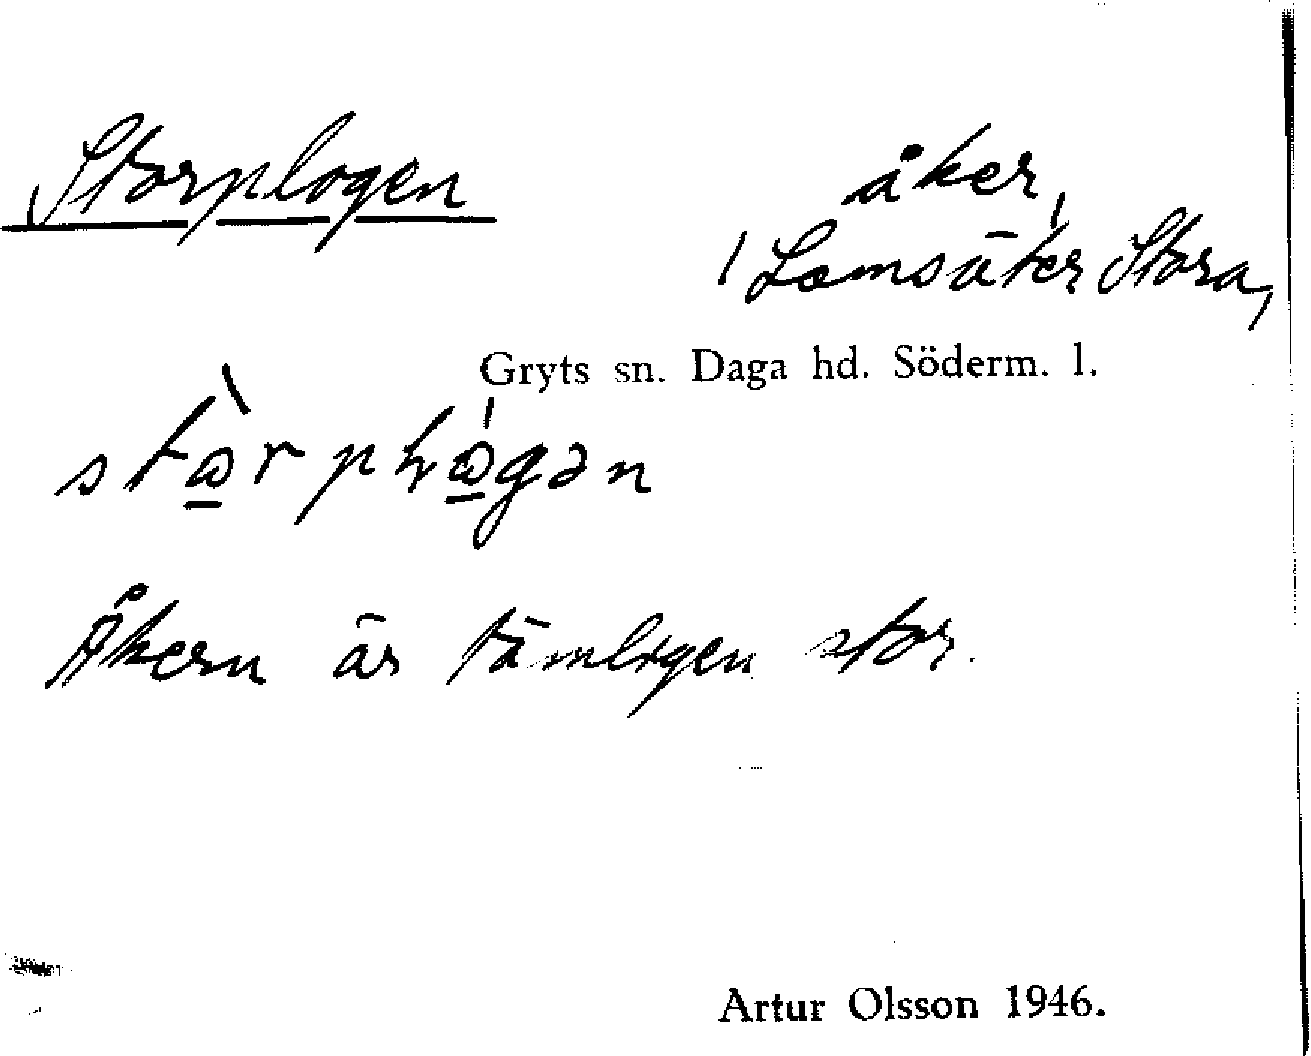 Storplogen
åker,
Lomsäter Stora,
Gryts sn. Daga hd. Söderm. l.
Åkern är tämligen stor.
Artur Olsson 1946.